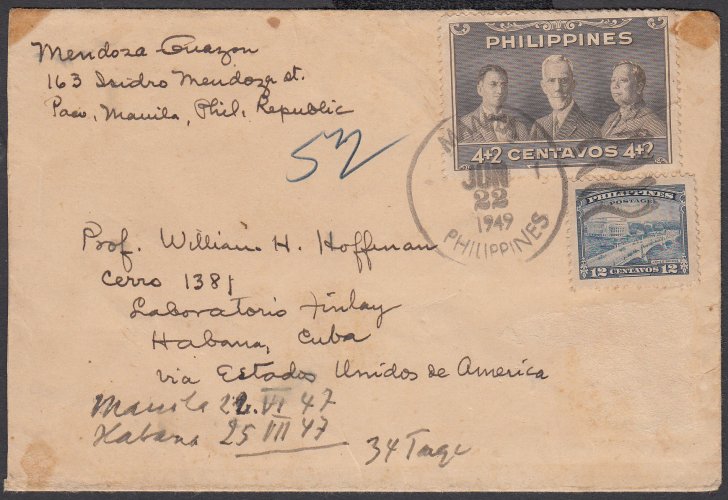 Mendoza Guazon
163 Isidro Mendoza st.
Paco, Manila, Phil. Republic
PHILIPPINES
4+2 CENTAVOS 4+2
MANILA
JUN
22
1949
PHILIPPINES
PHILIPPINES
POSTAGE
12 CENTAVOS 12
Prof. William H. Hoffman
Cerro 1381
Laboratorio Finlay
Habana, Cuba
via Estados Unidos de America
Manila 22. VI 47
Habana 25 VII 47
34 Tage